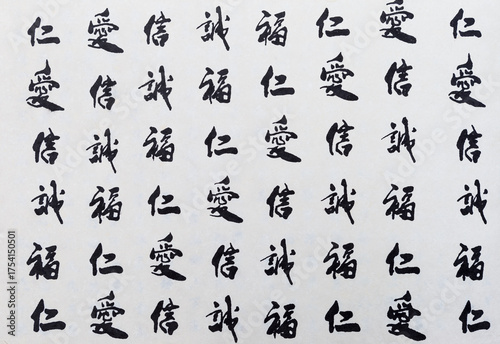 仁 愛 信 誠 福 仁 愛 仁
愛 信 誠 福 仁 愛 信 愛
信 誠 福 仁 愛 信 誠 信
誠 福 仁 愛 信 誠 福 誠
福 仁 愛 信 誠 福 仁 福
仁 愛 信 誠 福 仁 愛 仁
Adobe Stock | #1754150501